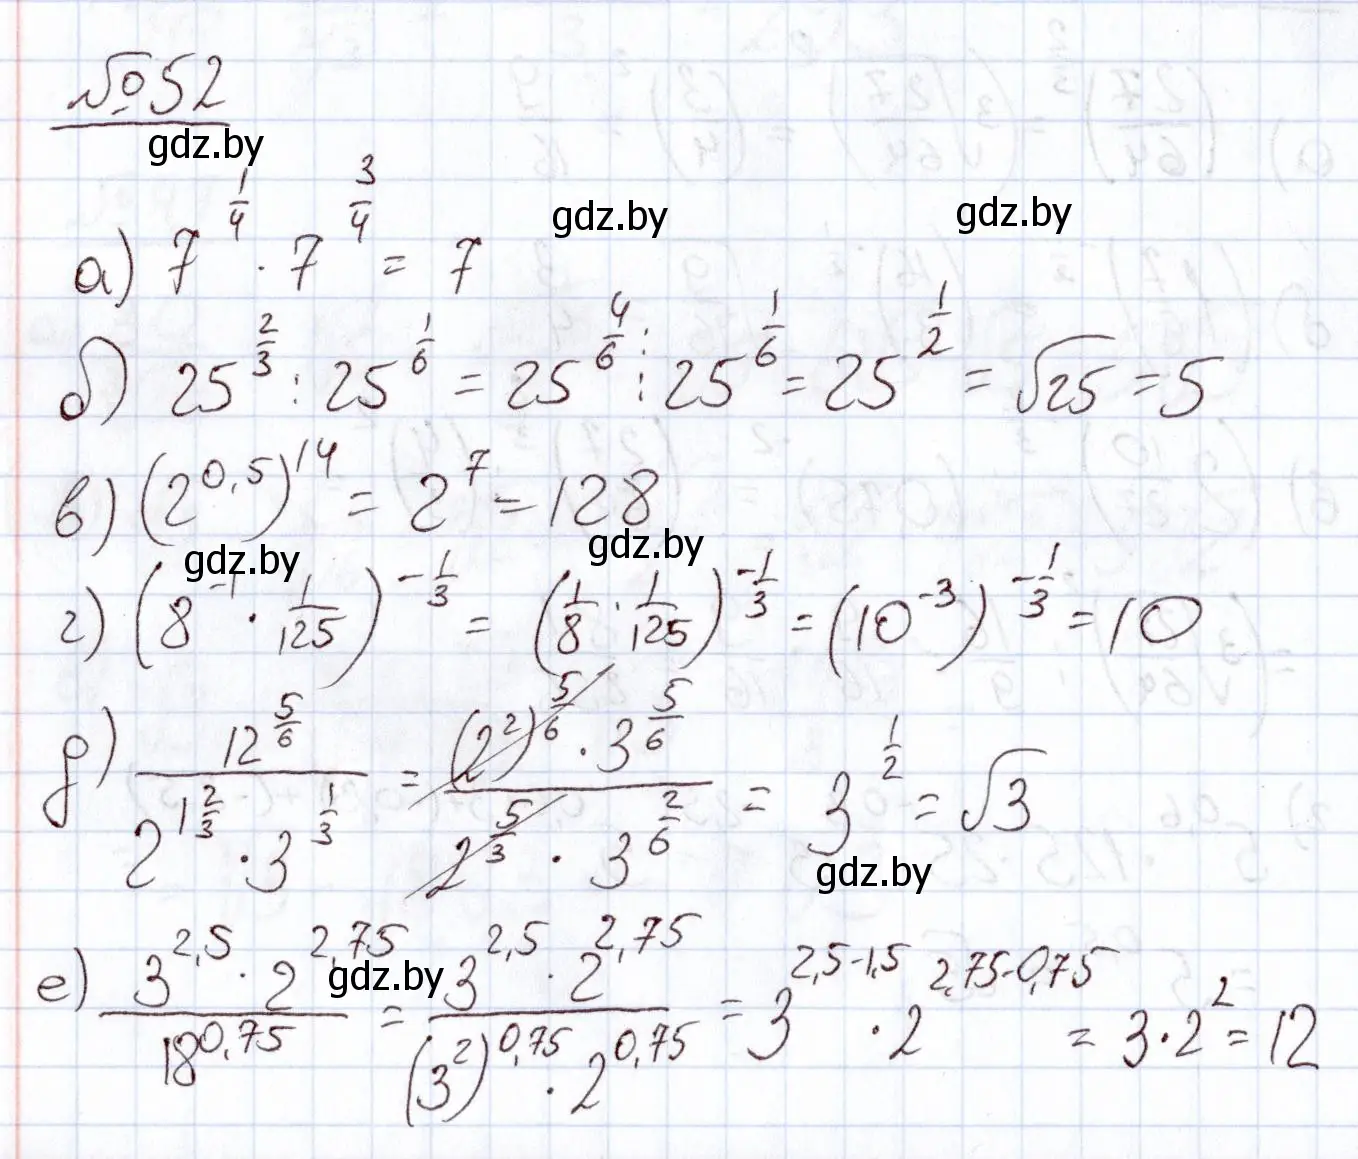 №52
gdz.by
gdz.by
gdz.by
а) 7^{1/4} · 7^{3/4} = 7
б) 25^{2/3} : 25^{1/6} = 25^{4/6} : 25^{1/6} = 25^{1/2} = √25 = 5
в) (2^{0,5})^{14} = 2^7 = 128
gdz.by
gdz.by
г) (8^{-1} · 1/125)^{-1/3} = (1/8 · 1/125)^{-1/3} = (10^{-3})^{-1/3} = 10
д) 12^{5/6} / (2^{1 2/3} · 3^{1/3}) = ((2^2)^{5/6} · 3^{5/6}) / (2^{5/3} · 3^{2/6}) = 3^{1/2} = √3
gdz.by
е) (3^{2,5} · 2^{2,75}) / 18^{0,75} = (3^{2,5} · 2^{2,75}) / ((3^2)^{0,75} · 2^{0,75}) = 3^{2,5-1,5} · 2^{2,75-0,75} = 3 · 2^2 = 12
gdz.by